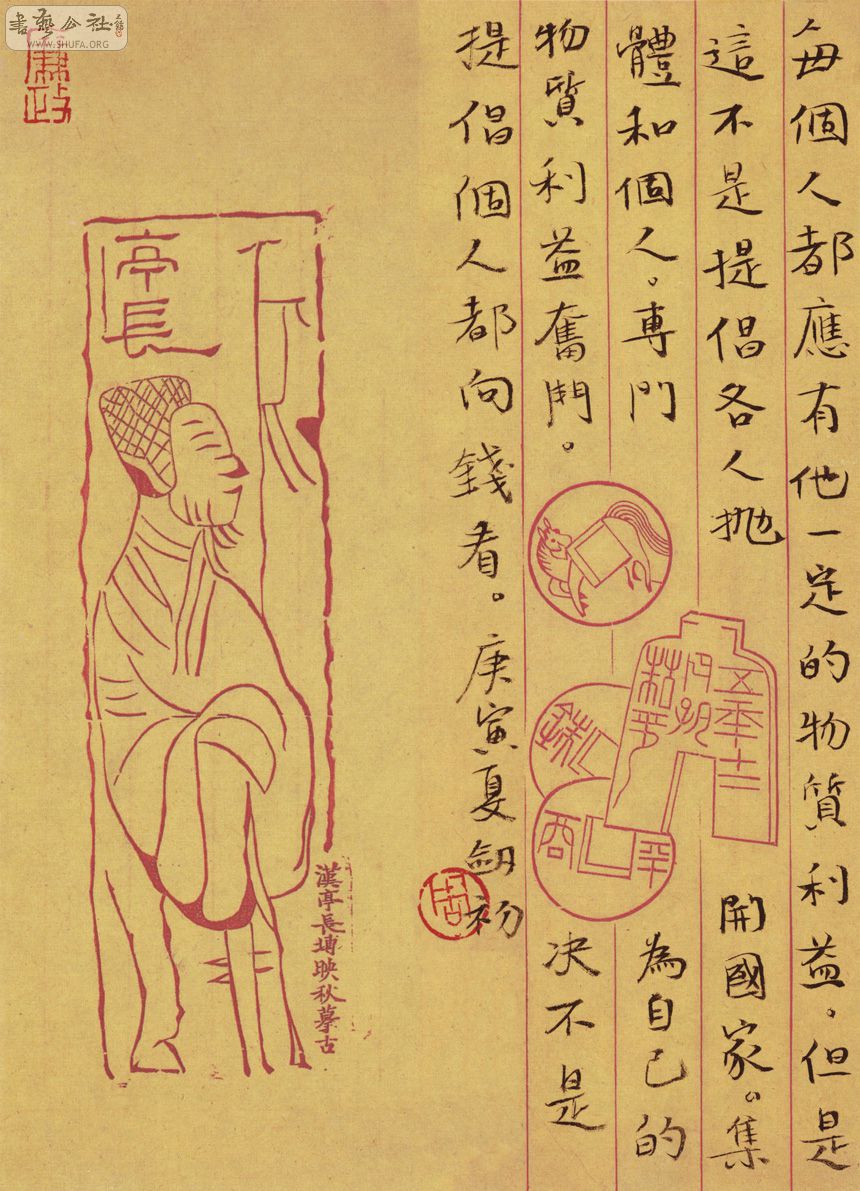 每個人都應有他一定的物質利益。但是
這不是提倡各人抛開國家。集
體和個人。專門為自己的
物質利益奮鬥。决不是
提倡個人都向錢看。庚寅夏劒初
亭長
漢亭長塼映秋摹古
廉政
書藝公社
WWW.SHUFA.ORG